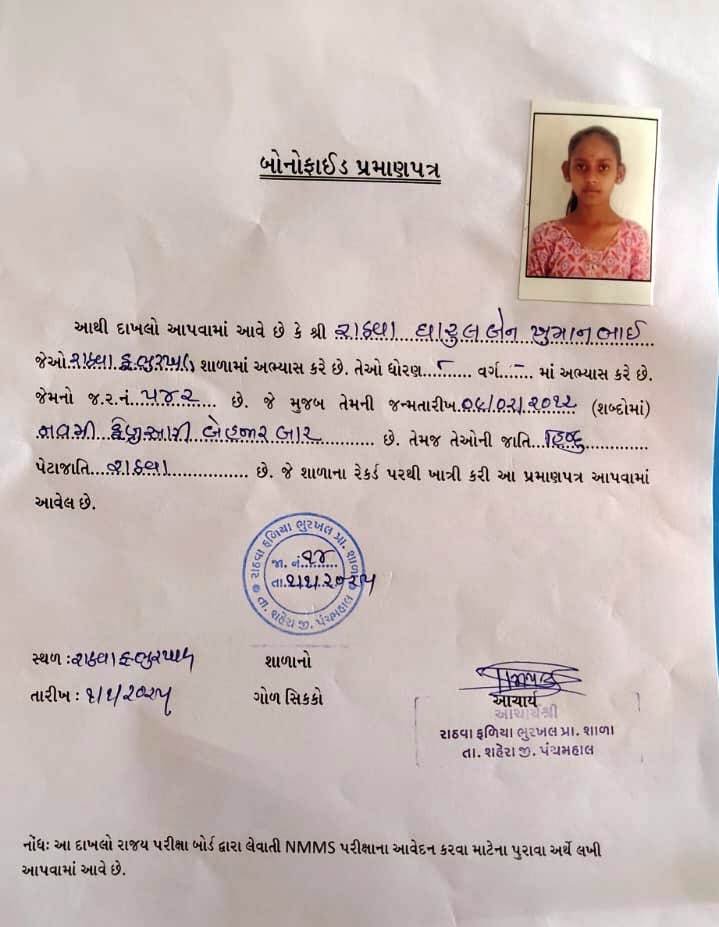 બોનોફાઈડ પ્રમાણપત્ર
આથી દાખલો આપવામાં આવે છે કે શ્રી રાઠવા પારુલબેન ખુમાનભાઈ
જેઓ રાઠવા ફ. ભુરખલ શાળામાં અભ્યાસ કરે છે. તેઓ ધોરણ........ વર્ગ....... માં અભ્યાસ કરે છે.
જેમનો જ.ર.નં. ૫૪૨ છે. જે મુજબ તેમની જન્મતારીખ ૦૯/૦૨/૨૦૧૨ (શબ્દોમાં)
નવમી ફેબ્રુઆરી બેહજાર બાર છે. તેમજ તેઓની જાતિ હિન્દુ
પેટાજાતિ રાઠવા છે. જે શાળાના રેકર્ડ પરથી ખાત્રી કરી આ પ્રમાણપત્ર આપવામાં
આવેલ છે.
રાઠવા ફળિયા ભુરખલ પ્રા. શાળા
જા. નં. ૧૪
તા. ૧/૧/૨૦૨૫
તા. શહેરા જી. પંચમહાલ
સ્થળ : રાઠવા ફ. ભુરખલ
શાળાનો
તારીખ : ૧/૧/૨૦૨૫
ગોળ સિક્કો
આચાર્ય
આચાર્યશ્રી
રાઠવા ફળિયા ભુરખલ પ્રા. શાળા
તા. શહેરા જી. પંચમહાલ
નોંધઃ આ દાખલો રાજય પરીક્ષા બોર્ડ દ્વારા લેવાતી NMMS પરીક્ષાના આવેદન કરવા માટેના પુરાવા અર્થે લખી
આપવામાં આવે છે.